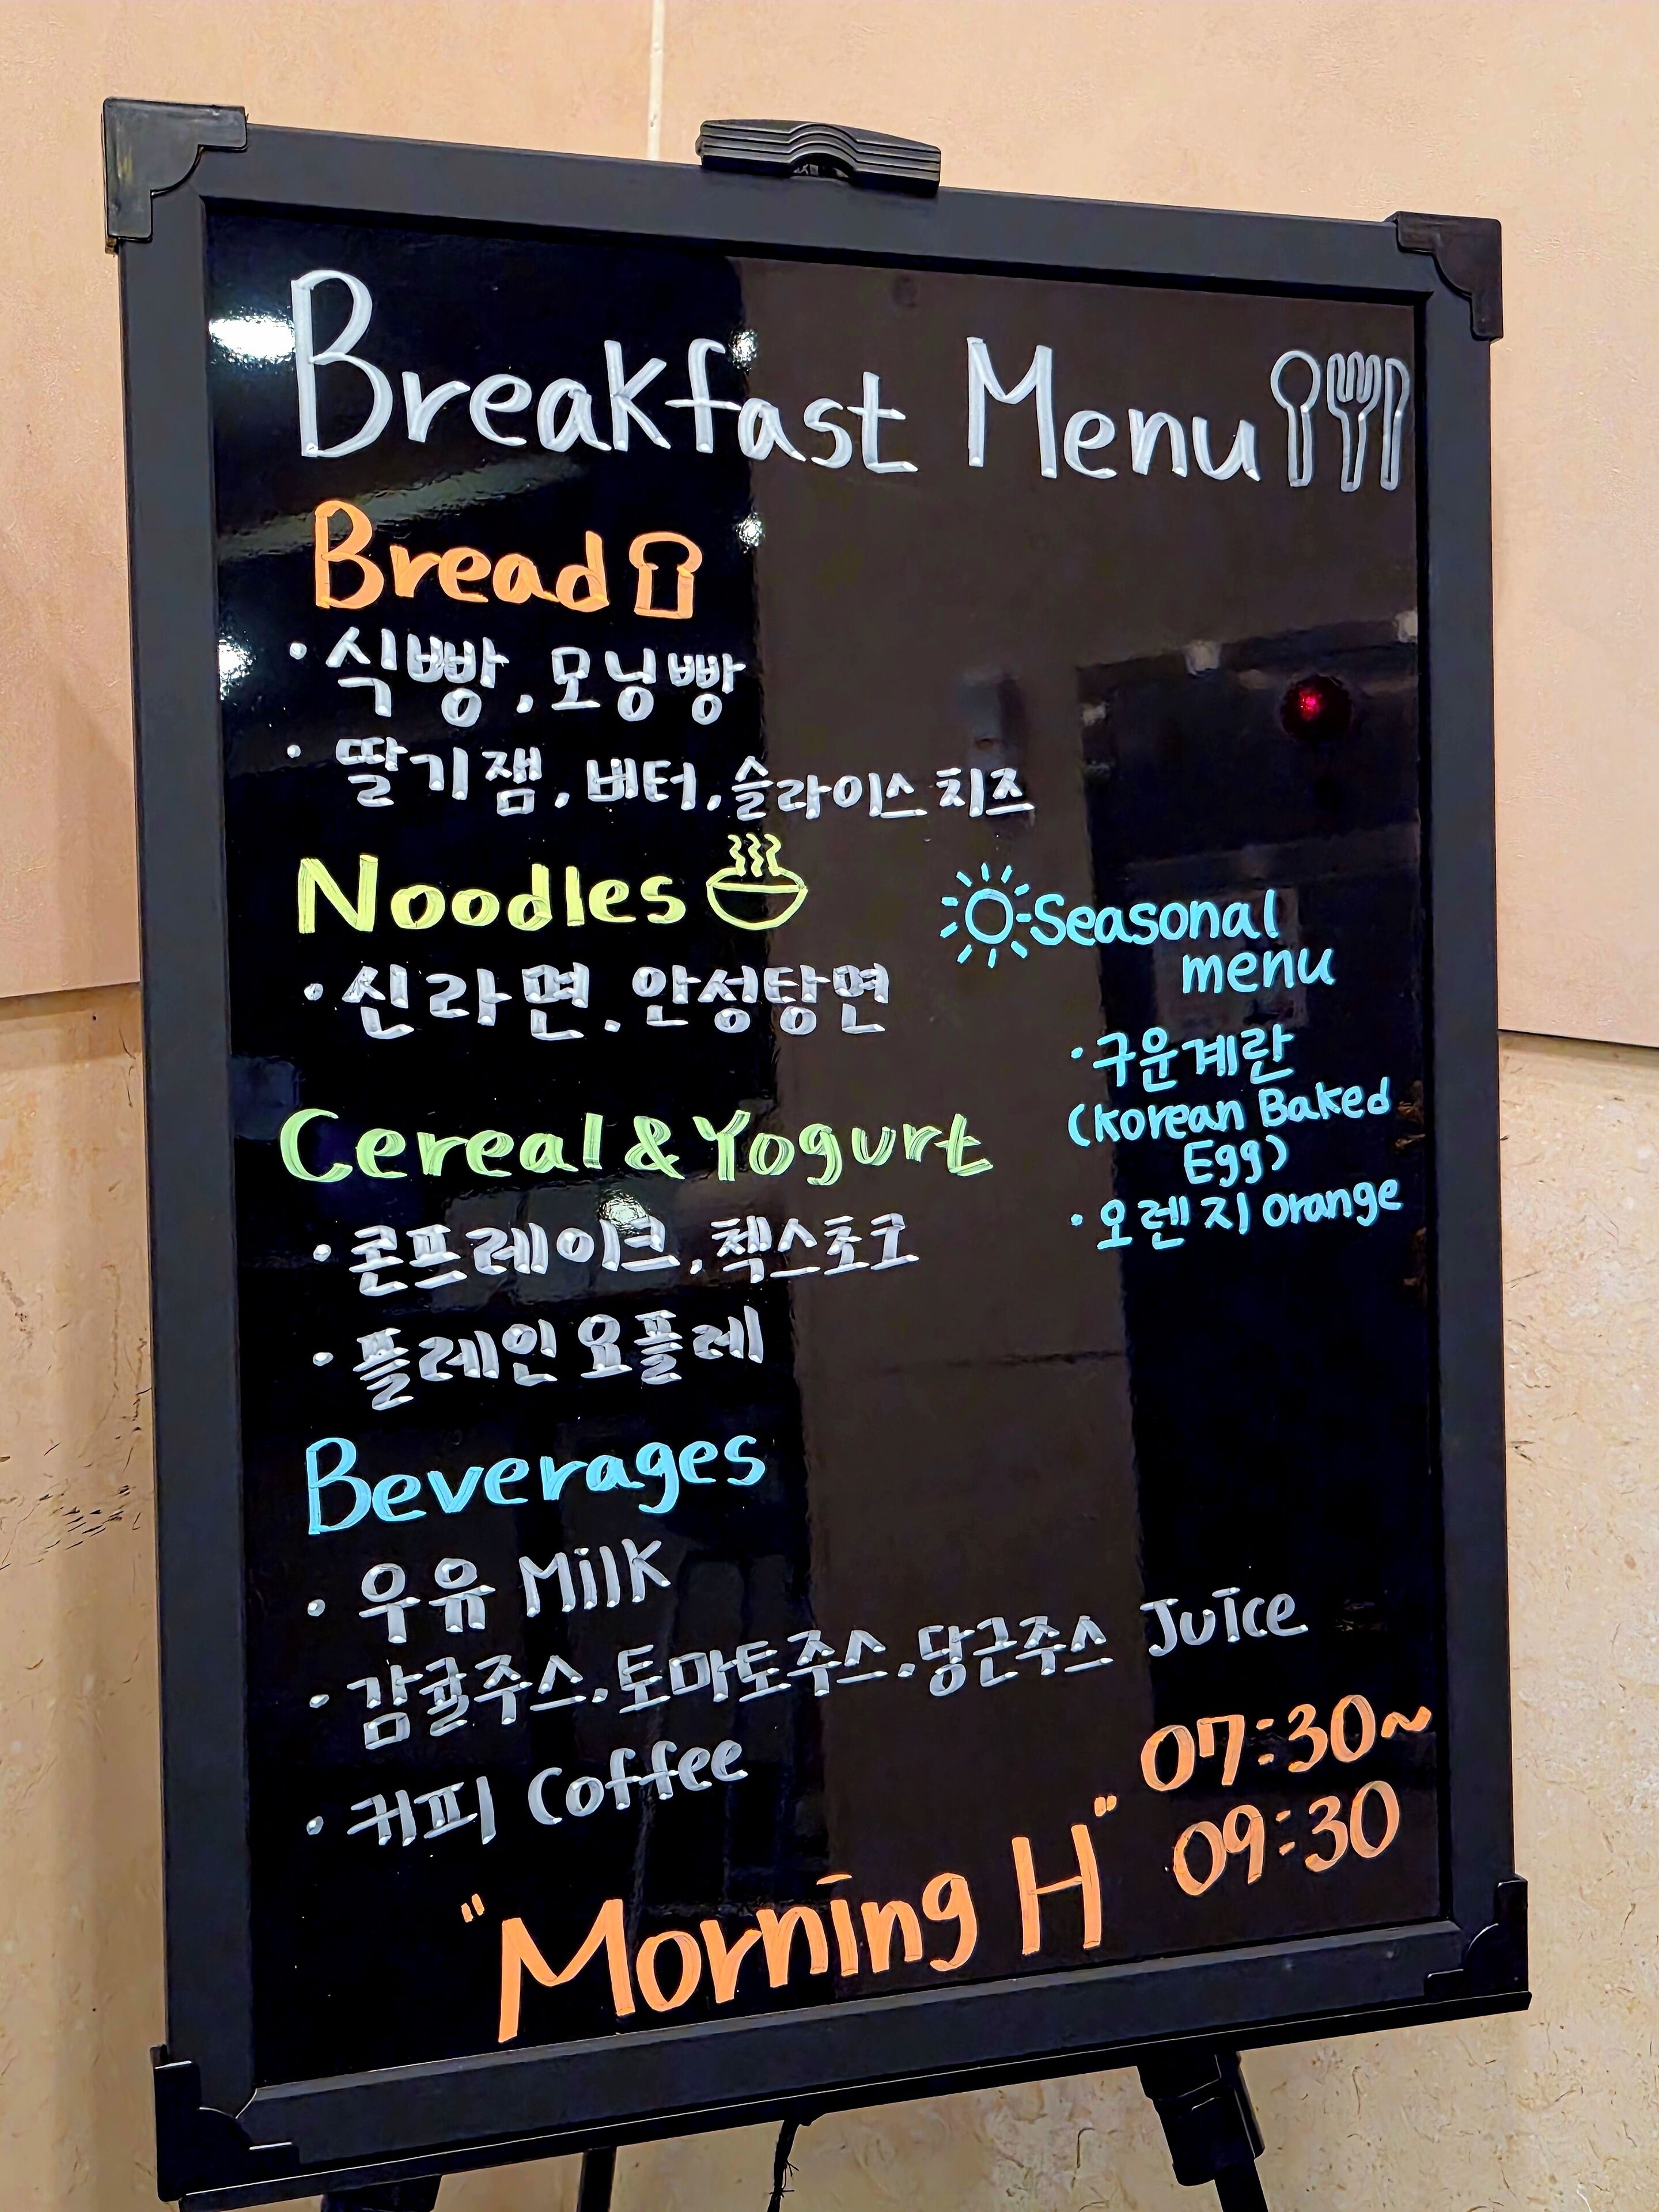 Breakfast Menu
Bread
· 식빵, 모닝빵
· 딸기잼, 버터, 슬라이스 치즈
Noodles
· 신라면, 안성탕면
Cereal & Yogurt
· 콘프레이크, 첵스초코
· 플레인 요플레
Seasonal
menu
· 구운계란
(Korean Baked
Egg)
· 오렌지 orange
Beverages
· 우유 Milk
· 감귤주스, 토마토주스, 당근주스 Juice
· 커피 Coffee
07:30~
09:30
"Morning H"